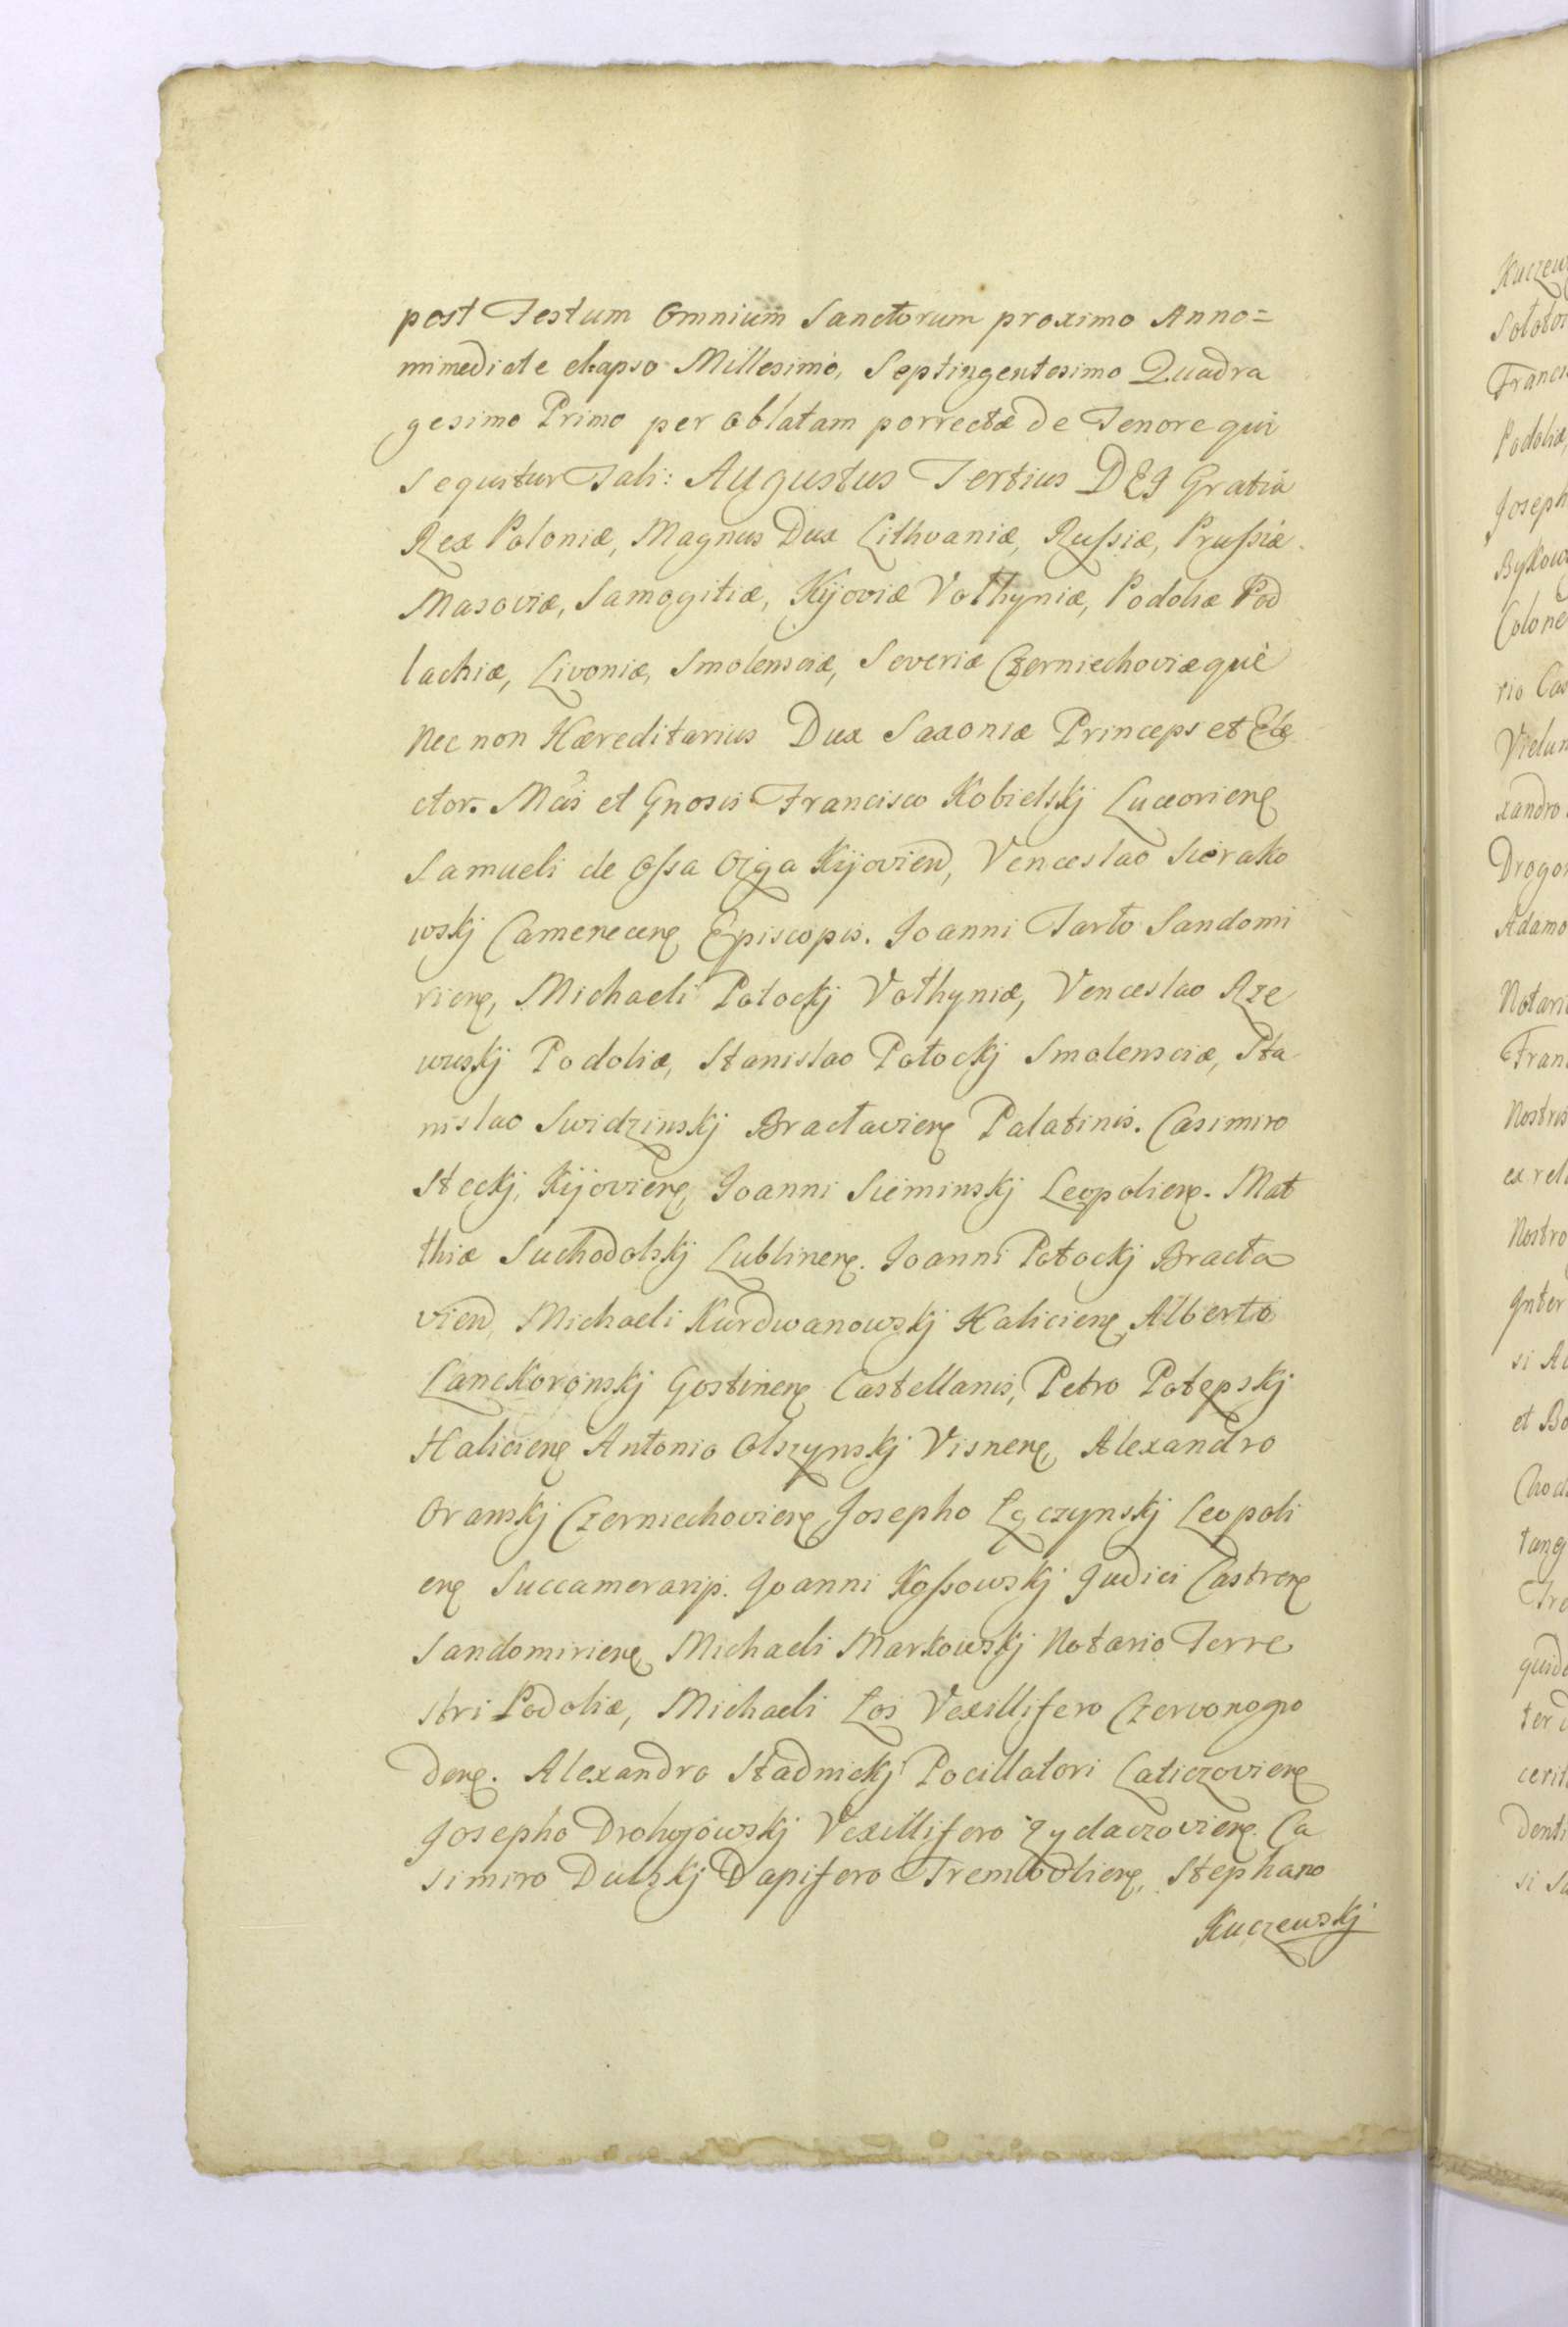 post Festum Omnium Sanctorum proximo Anno=
immediate elapso Millesimo, Septingentesimo Quadra
gesimo Primo per oblatam porrectæ de Tenore qui
sequitur Tali: Augustus Tertius DEI Gratia
Rex Poloniæ, Magnus Dux Lithvaniæ, Russiæ, Prussiæ
Masoviæ, Samogitiæ, Kijoviæ Volhyniæ, Podoliæ Pod
lachiæ, Livoniæ, Smolensciæ, Severiæ Czerniechoviæquè
nec non Hæreditarius Dux Saxoniæ Princeps et Ele
ctor. Mcis et Gnosis Francisco Kobielskj Luceorien
Samueli de Ossa Ożga Kijovien, Venceslao Sierako
wskj Camenecen Episcopis. Joanni Tarło Sandomi
rien, Michaeli Potockj Volhyniæ, Venceslao Rze
wuskj Podoliæ, Stanislao Potockj Smolensciæ, Sta
nislao Swidzinskj Bractavien Palatinis. Casimiro
Steckj, Kijovien, Joanni Sieminskj Leopolien. Mat
thiæ Suchodolskj Lublinen. Joanni Potockj Bracta
vien, Michaeli Kurdwanowskj Halicien, Alberto
Lanckorónskj Gostinen Castellanis, Petro Potępskj
Halicien Antonio Olszynskj Visnen, Alexandro
Oranskj Czerniechovien Josepho Łączynskj Leopoli
en Succamerarijs. Joanni Kossowskj Judici Castren
Sandomirien, Michaeli Markowskj Notario Terre
stri Podoliæ, Michaeli Łoś Vexillifero Czervonogro
den. Alexandro Stadnickj Pocillatori Laticzovien
Josepho Drohojówskj Vexillifero Żydaczovien. Ca
simiro Dulskj Dapifero Trembovlien, Stephano
Kuczewskj
Francis
Podoliæ
Joseph
Bykows
Colone
rio Cas
Vielun
xandro
Adamo
Notari
Fran
Nostris
ex rel
Nostro
Inter
et Bo